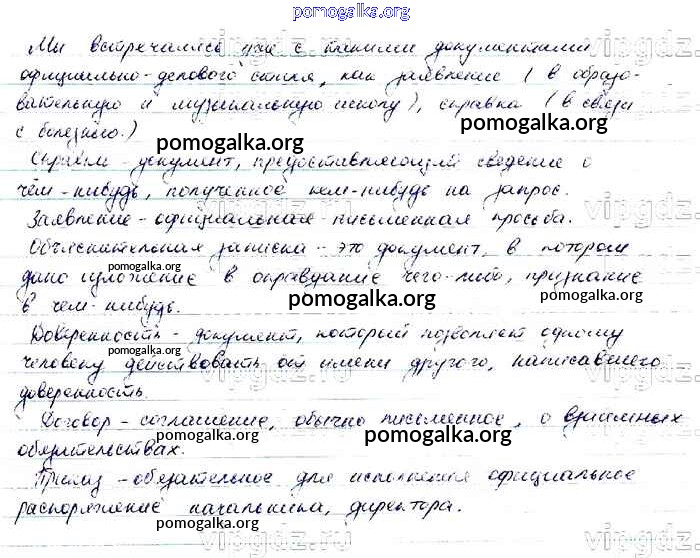 pomogalka.org
Мы встречались уже с такими документами
официально-делового стиля, как заявление (в образо-
вательную и музыкальную школу), справка (в связи
с болезнью.)
pomogalka.org pomogalka.org
Справка - документ, предоставляющий сведение о
чём-нибудь, полученное кем-нибудь на запрос.
vipgdz.ru
Заявление - официальная письменная просьба.
Объяснительная записка - это документ, в котором
дано изложение в оправдание чего-либо, признание
pomogalka.org pomogalka.org pomogalka.org
в чем-нибудь.
Доверенность - документ, который позволяет одному
pomogalka.org
человеку действовать от имени другого, написавшего
доверенность.
Договор - соглашение, обычно письменное, о взаимных
pomogalka.org pomogalka.org
обязательствах.
Приказ - обязательное для исполнения официальное
распоряжение начальника, директора.
pomogalka.org
vipgdz.ru